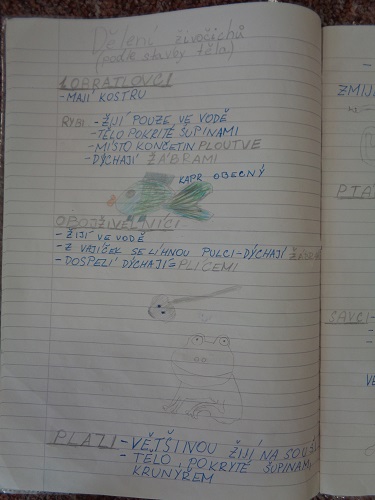 Dělení živočichů
(podle stavby těla)
OBRATLOVCI
- MAJÍ KOSTRU
RYBI - ŽIJÍ POUZE VE VODĚ
- TĚLO POKRITÉ ŠUPINAMI
- MÍSTO KONČETIN PLOUTVE
- DÝCHAJÍ ŽÁBRAMI
KAPR OBECNÝ
OBOJŽIVELNÍCI
- ŽIJÍ VE VODĚ
- Z VAJÍČEK SE LÍHNOU PULCI - DÝCHAJÍ
- DOSPELÍ DÝCHAJÍ = PLÍCEMI
PLAZI - VĚTŠINOU ŽIJÍ NA
- TĚLO POKRYTÉ ŠUPINAMI
KRUNÝŘEM
ZMIJ
PTA
SAVCI -